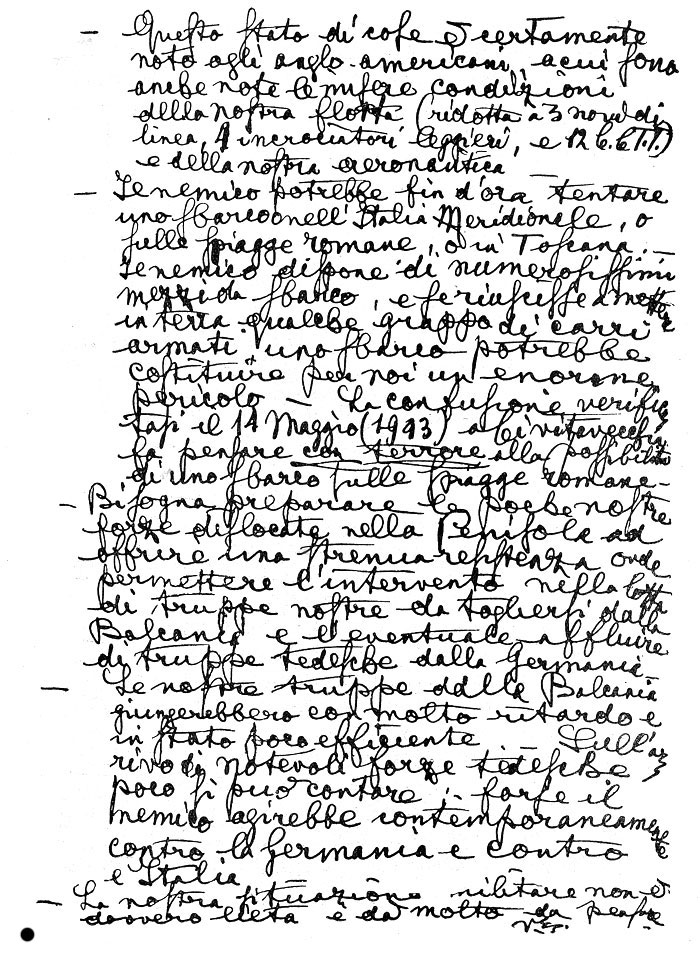 — Questo stato di cose è certamente
noto agli anglo americani, a cui sono
anche note le misere condizioni
della nostra flotta (ridotta a 3 navi di
linea, 4 incrociatori leggeri, e 12 C.C.T.T.)
e della nostra aeronautica —
— Se nemico potrebbe fin d'ora tentare
uno sbarco nell'Italia Meridionale, o
sulle spiagge romane, o in Toscana. —
Se nemico dispone di numerosissimi
mezzi da sbarco, e se riuscisse a mettere
in terra qualche gruppo di carri
armati, uno sbarco potrebbe
costituire per noi un enorme
pericolo — La confusione verifica
tasi il 14 Maggio (1943) a Civitavecchia
fa pensare con terrore alla possibilità
di uno sbarco sulle spiagge romane —
— Bisogna preparare le poche nostre
forze dislocate nella Penisola ad
offrire una strenua resistenza onde
permettere l'intervento nella lotta
di truppe nostre da togliersi dalla
Balcania e l'eventuale affluire
di truppe tedesche dalla Germania —
— Le nostre truppe dalla Balcania
giungerebbero con molto ritardo e
in stato poco efficiente Sull'ar
rivo di notevoli forze tedesche
poco si può contare: forse il
nemico agirebbe contemporaneamente
contro la Germania e contro
e Italia
— La nostra situazione militare non è
davvero lieta e dà molto da pensare